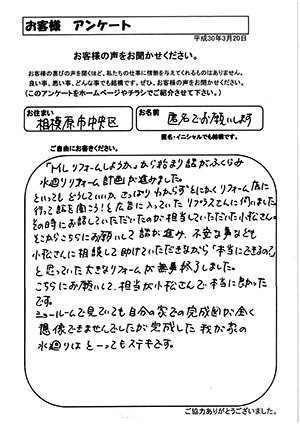 お客様 アンケート
平成30年3月20日
お客様の声をお聞かせください。
お客様の喜びの声を聞くほど、私たちの仕事に情熱を与えてくれるものはありません。
良い事、悪い事、どんな事でも結構です。ぜひ、お客様の声をお聞かせください。
(このアンケートをホームページやチラシでご紹介させて下さい。)
お住まい
相模原市中央区
お名前
匿名でお願いします
匿名・イニシャルでも結構です。
ご自由にお書きください。
「トイレリフォームしようか」から始まり話がふくらみ
水廻りリフォーム計画が進みました。
といってもどうしていいか、さっぱりわからずとにかくリフォーム店に
行って話を聞こう!と広告に入っていたリファクスさんに伺いました。
その時にお話していただいたのが担当していただいた小松さん。
そこからこちらにお願いして話が進み、不安な事なども
小松さんに相談して助けていただきながら「本当にできるの?」
と思っていた大きなリフォームが無事終了しました。
こちらにお願いして、担当が小松さんで本当に良かった
です。
ショールームで見ていても自分の家での完成図が全く
想像できませんでしたが完成した我が家の
水廻りはとーってもステキです。
ご協力ありがとうございました。